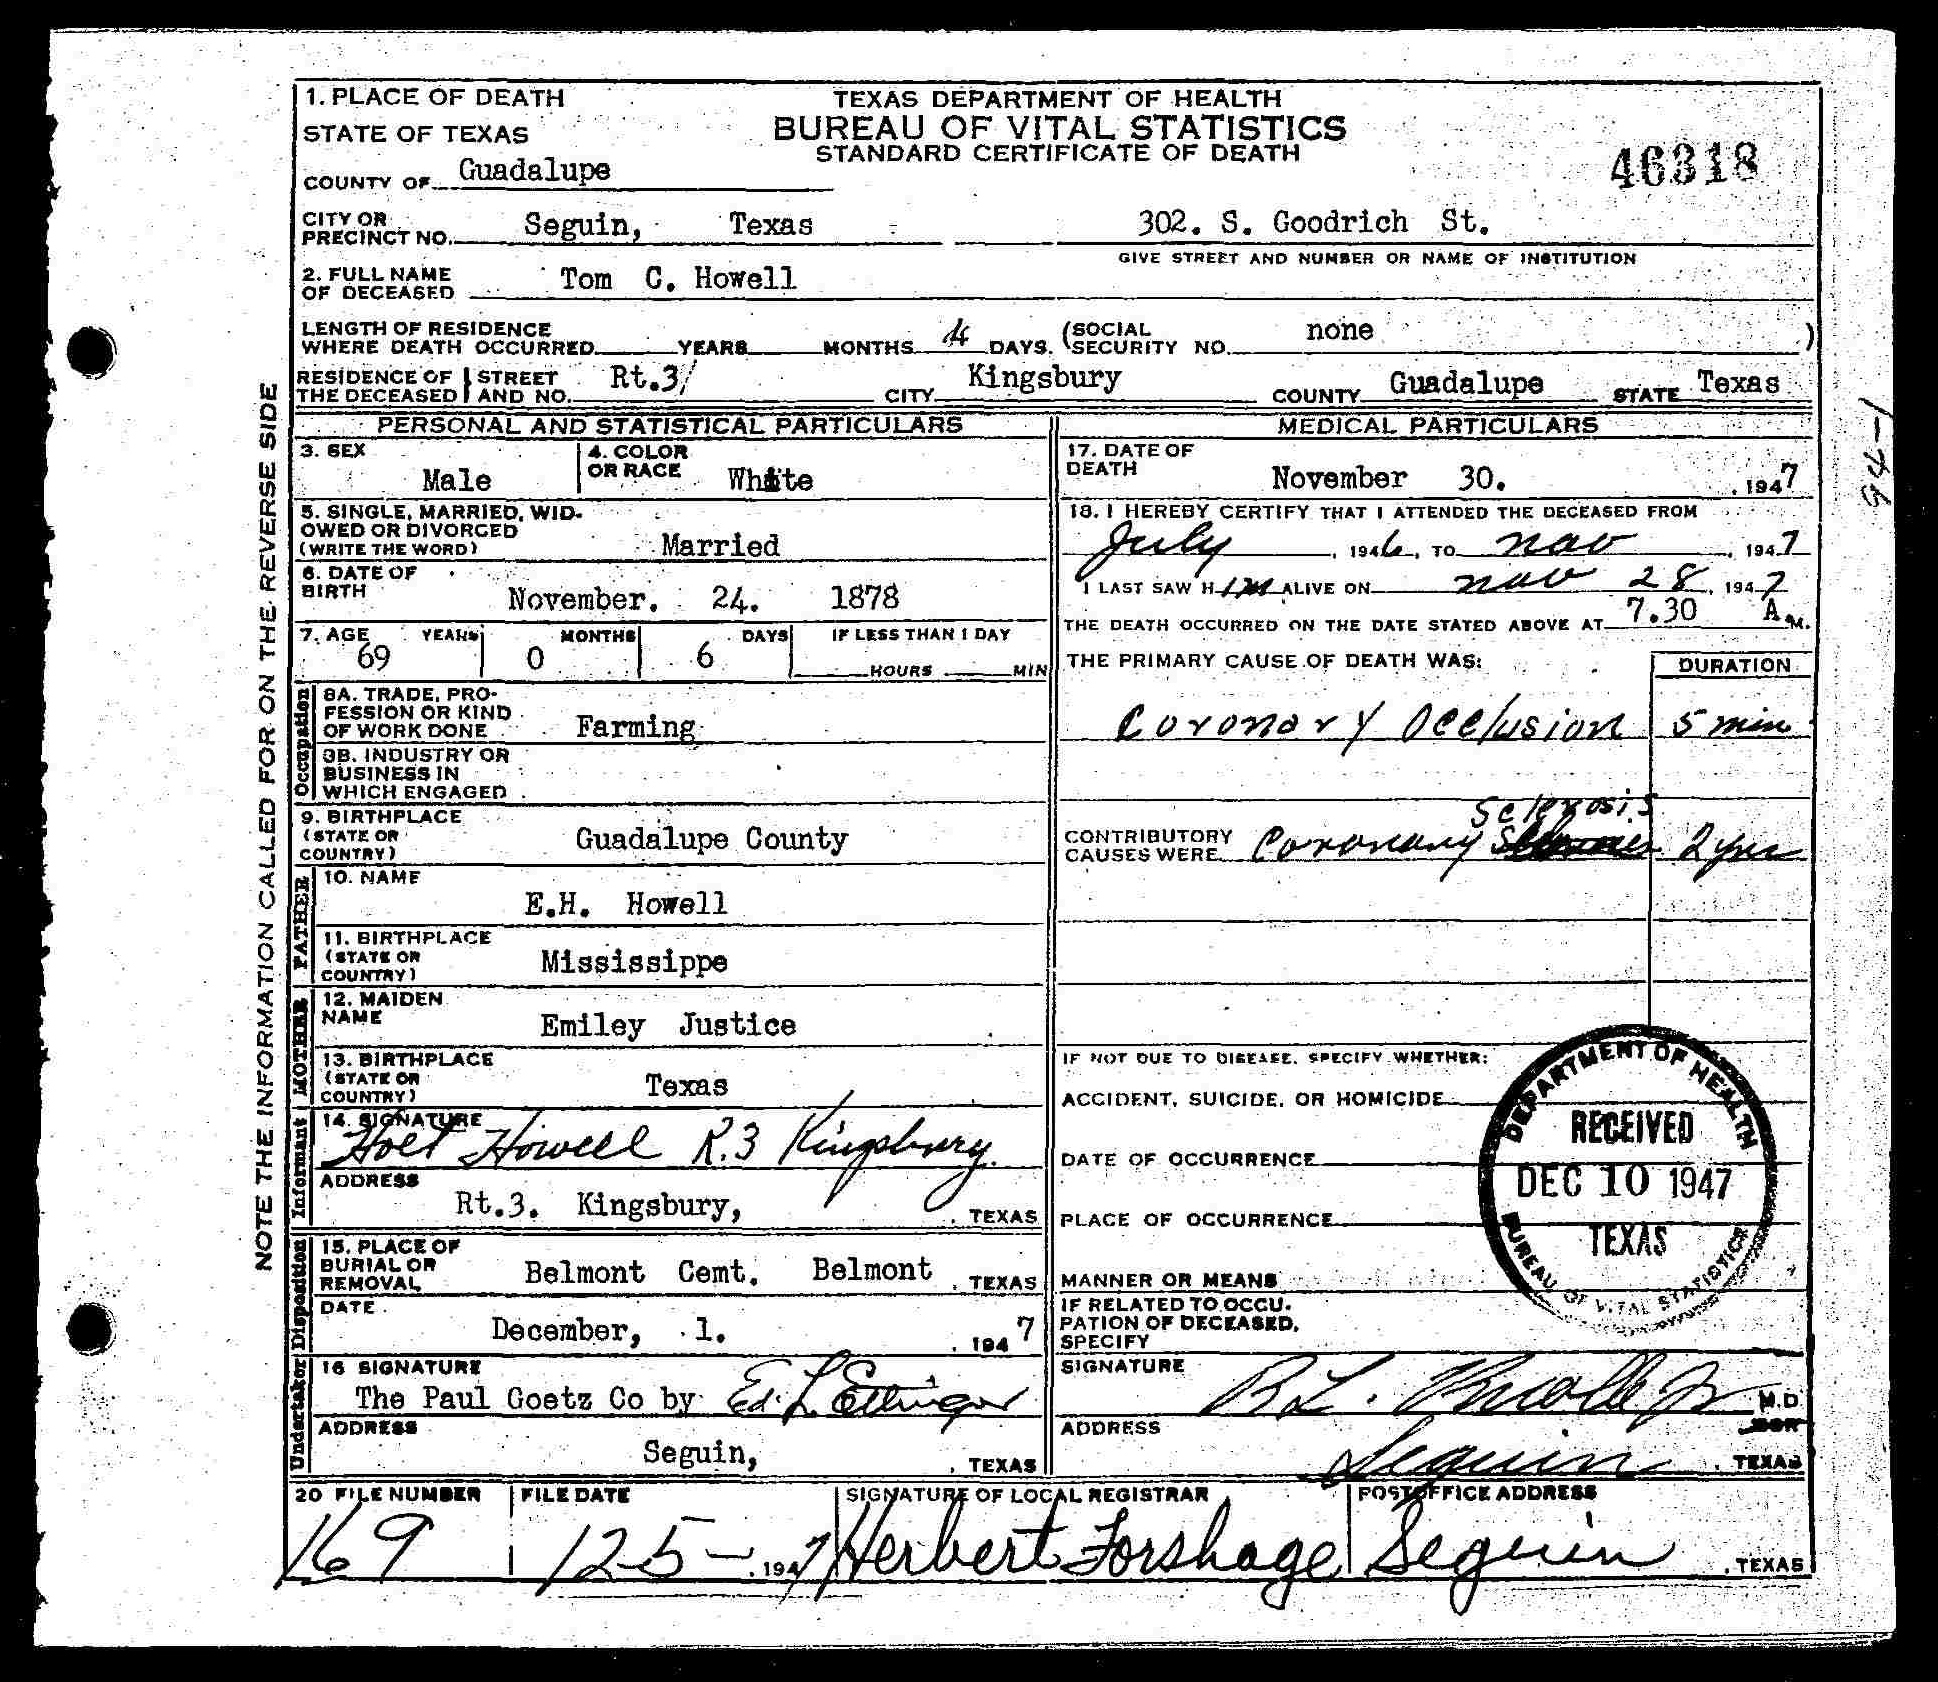 TEXAS DEPARTMENT OF HEALTH
BUREAU OF VITAL STATISTICS
STANDARD CERTIFICATE OF DEATH
46318
1. PLACE OF DEATH
STATE OF TEXAS
COUNTY OF Guadalupe
CITY OR PRECINCT NO. Seguin, Texas 302. S. Goodrich St.
GIVE STREET AND NUMBER OR NAME OF INSTITUTION
2. FULL NAME OF DECEASED Tom C. Howell
LENGTH OF RESIDENCE WHERE DEATH OCCURRED YEARS MONTHS DAYS. (SOCIAL SECURITY NO. none )
RESIDENCE OF THE DECEASED STREET AND NO. Rt.3/ CITY Kingsbury COUNTY Guadalupe STATE Texas
PERSONAL AND STATISTICAL PARTICULARS
3. SEX Male
4. COLOR OR RACE White
5. SINGLE, MARRIED, WIDOWED OR DIVORCED (WRITE THE WORD) Married
6. DATE OF BIRTH November. 24. 1878
7. AGE YEARS MONTHS DAYS IF LESS THAN 1 DAY
69 0 6 HOURS MIN
Occupation
8A. TRADE, PROFESSION OR KIND OF WORK DONE Farming
8B. INDUSTRY OR BUSINESS IN WHICH ENGAGED
9. BIRTHPLACE (STATE OR COUNTRY) Guadalupe County
FATHER
10. NAME E.H. Howell
11. BIRTHPLACE (STATE OR COUNTRY) Mississippe
MOTHER
12. MAIDEN NAME Emiley Justice
13. BIRTHPLACE (STATE OR COUNTRY) Texas
Informant
14. SIGNATURE Holt Howell R.3 Kingsbury.
ADDRESS Rt.3. Kingsbury, , TEXAS
Disposition
15. PLACE OF BURIAL OR REMOVAL Belmont Cemt. Belmont , TEXAS
DATE December, 1. , 1947
Undertaker
16 SIGNATURE The Paul Goetz Co by Ed. L Ettinger
ADDRESS Seguin, , TEXAS
MEDICAL PARTICULARS
17. DATE OF DEATH November 30. , 1947
18. I HEREBY CERTIFY THAT I ATTENDED THE DECEASED FROM
July , 1946, TO nov , 1947
I LAST SAW HIM ALIVE ON nov 28, 1947
THE DEATH OCCURRED ON THE DATE STATED ABOVE AT 7.30 A M.
THE PRIMARY CAUSE OF DEATH WAS: DURATION
Coronary Occlusion 5 min
Sclerosis
CONTRIBUTORY CAUSES WERE Coronary 2 yrs
IF NOT DUE TO DISEASE, SPECIFY WHETHER:
ACCIDENT, SUICIDE, OR HOMICIDE
DATE OF OCCURRENCE
PLACE OF OCCURRENCE
MANNER OR MEANS
IF RELATED TO OCCUPATION OF DECEASED, SPECIFY
DEPARTMENT OF HEALTH
RECEIVED
DEC 10 1947
TEXAS
BUREAU OF VITAL STATISTICS
SIGNATURE B.L. Jr M.D.
ADDRESS Seguin , TEXAS
20 FILE NUMBER FILE DATE SIGNATURE OF LOCAL REGISTRAR POSTOFFICE ADDRESS
169 12-5- , 1947 Herbert Forshage Seguin , TEXAS
NOTE THE INFORMATION CALLED FOR ON THE REVERSE SIDE